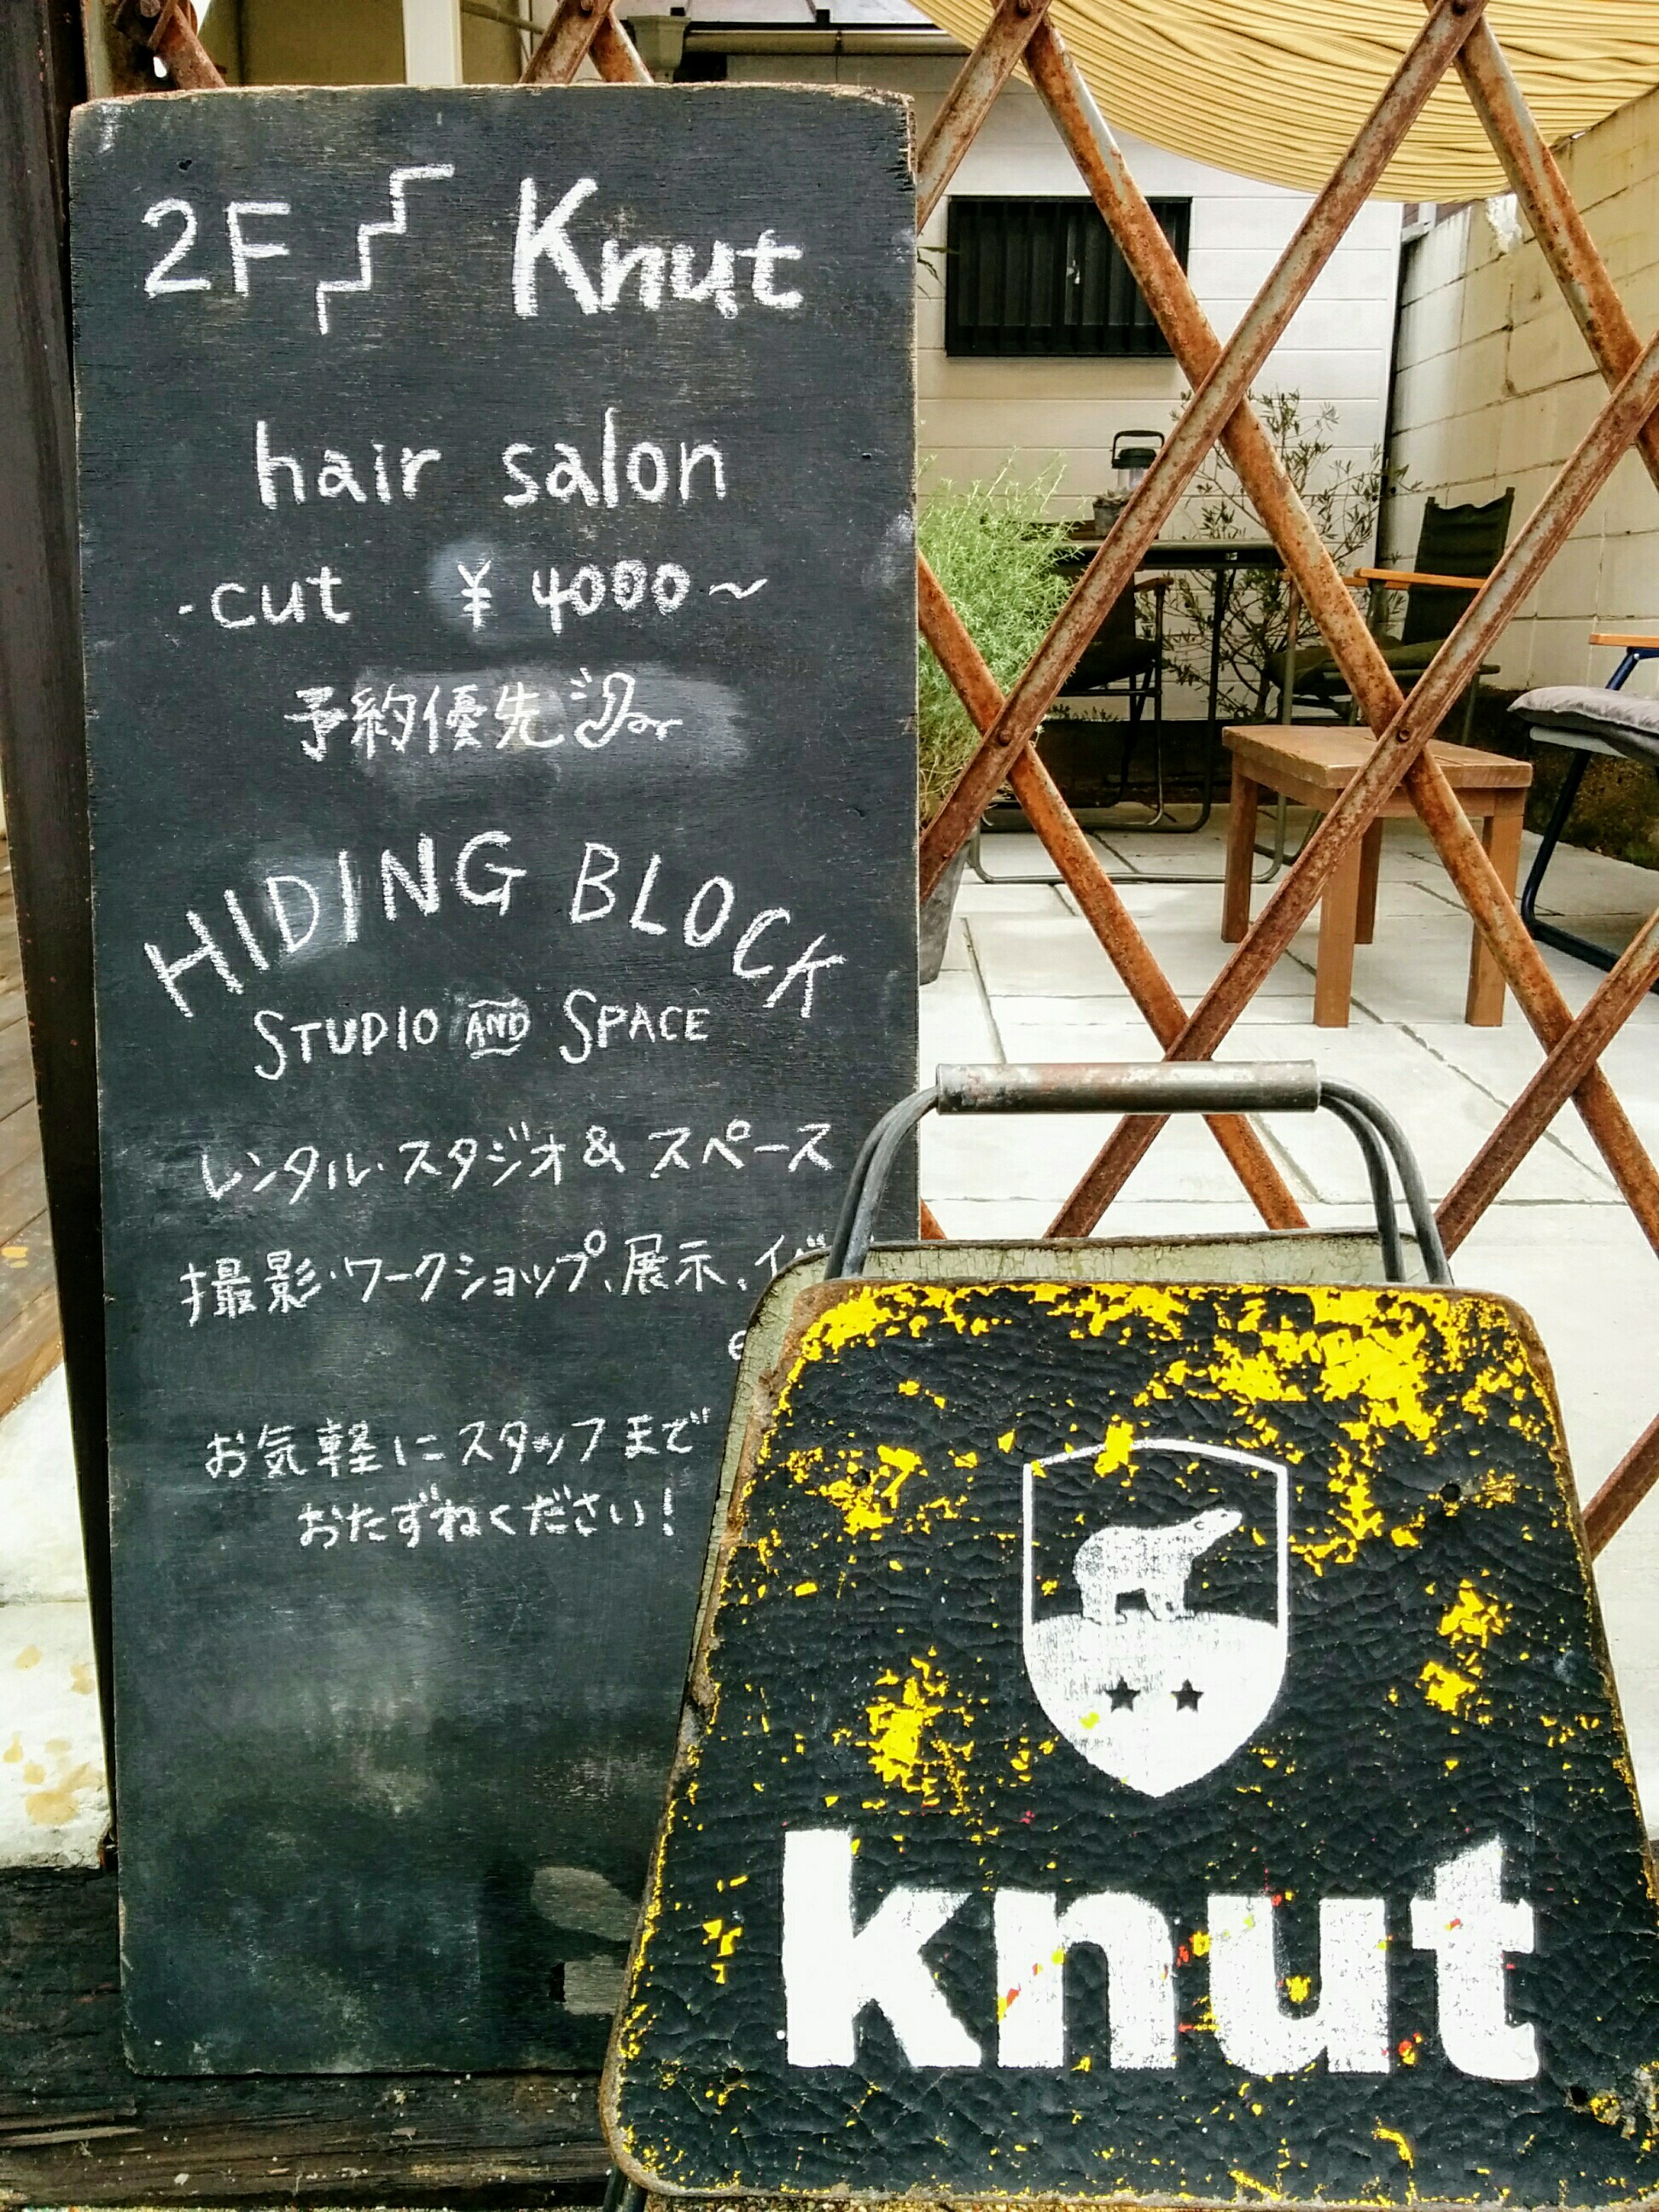 2F Knut
hair salon
・cut ¥4000〜
予約優先
HIDING BLOCK
STUDIO AND SPACE
レンタル・スタジオ & スペース
撮影・ワークショップ、展示、イベ
お気軽にスタッフまで
おたずねください!
knut